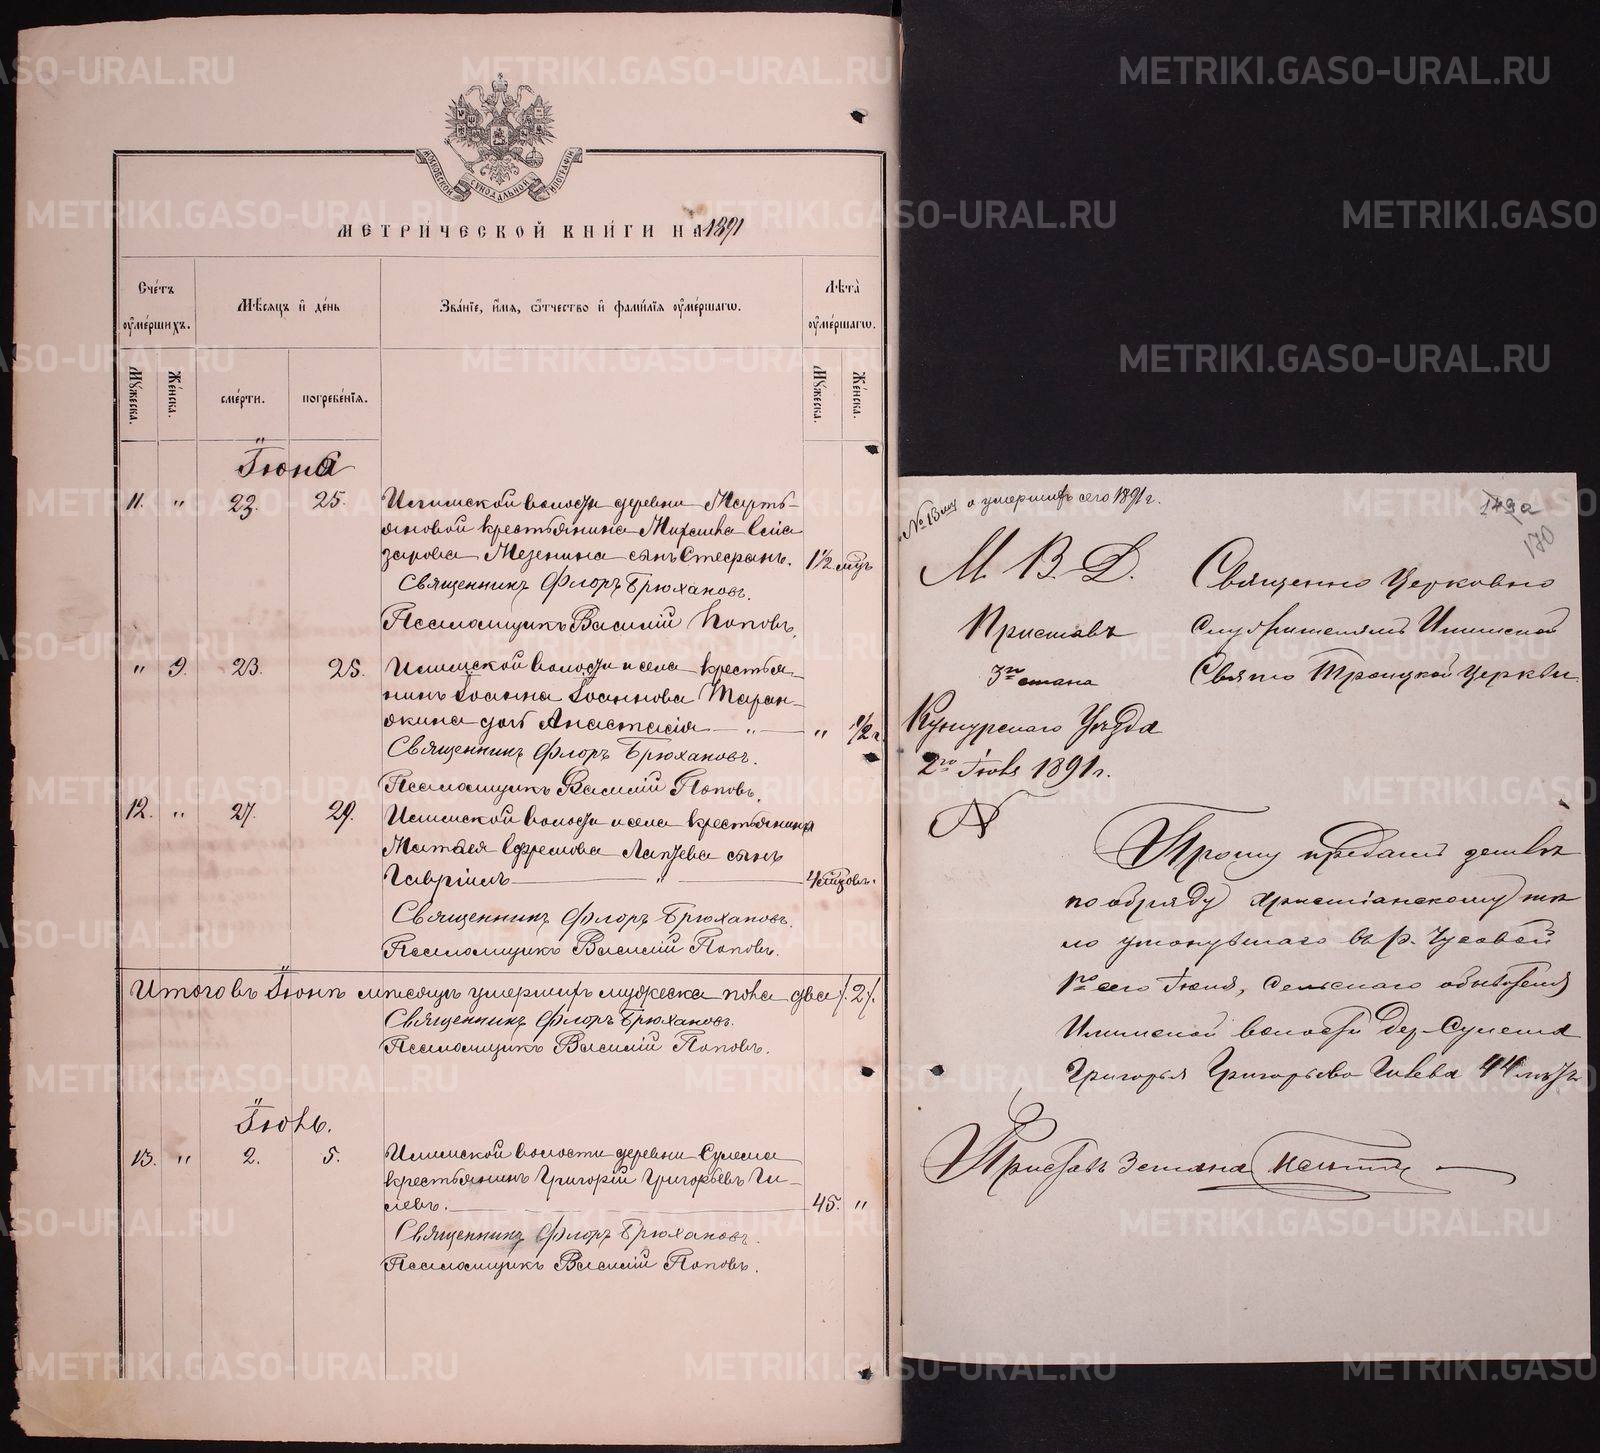 МОСКОВСКОЙ СѴНОДАЛЬНОЙ ТИПОГРАФІИ
МЕТРИ́ЧЕСКОЙ КНИ́ГИ НА 1891
Сче́тъ ᲂу҆ме́ршихъ.
Мѣ́сяцъ и҆ де́нь
Зва́нїе, и҆́мя, ѻ҆́тчество и҆ фами́лїя ᲂу҆ме́ршагѡ.
Лѣта̀ ᲂу҆ме́ршагѡ.
Мꙋ́жеска.
Же́нска.
сме́рти.
погребе́нїя.
Мꙋ́жеска.
Же́нска.
Іюня
11. " 23. 25. Илимской волости деревни Марть-
яновой крестьянина Михаила
Мезенина сынъ Стефанъ. 1½ мѣс
Священникъ Флоръ Брюхановъ.
Псаломщикъ Василій Поповъ.
" 9. 23. 25. Илимской волости и села крестья-
нина Іоанна Іоаннова Таран-
жина дочь Анастасія " " ½ г.
Священникъ Флоръ Брюхановъ.
Псаломщикъ Василій Поповъ.
12. " 27. 29. Илимской волости и села крестьянина
Матвея Ефремова Лаптева сынъ
Гавріилъ " 4
Священникъ Флоръ Брюхановъ.
Псаломщикъ Василій Поповъ.
Итого въ Іюнѣ мѣсяцѣ умершихъ мужеска пола два /.2/.
Священникъ Флоръ Брюхановъ.
Псаломщикъ Василій Поповъ.
Іюль.
13. " 2. 5. Илимской волости деревни Сулема
крестьянинъ Григорій Григорьевъ Ги-
левъ. 45. "
Священникъ Флоръ Брюхановъ.
Псаломщикъ Василій Поповъ.
№ 13 о умершихъ сего 1891 г.
149а
170
М. В. Д.
Приставъ
3го стана
Кунгурскаго Уѣзда
2го 1891 г.
№
Священно Церковно
служителямъ Илимской
Свято Троицкой Церкви.
Прошу предать землѣ
по обряду христіанскому тѣ-
ло утонувшаго въ р. Чусовой
1го сего Іюля, сельскаго обывателя
Илимской волости дер. Сулема
Григорья Григорьева Гилева 44 лѣтъ
Приставъ 3 стана
METRIKI.GASO-URAL.RU